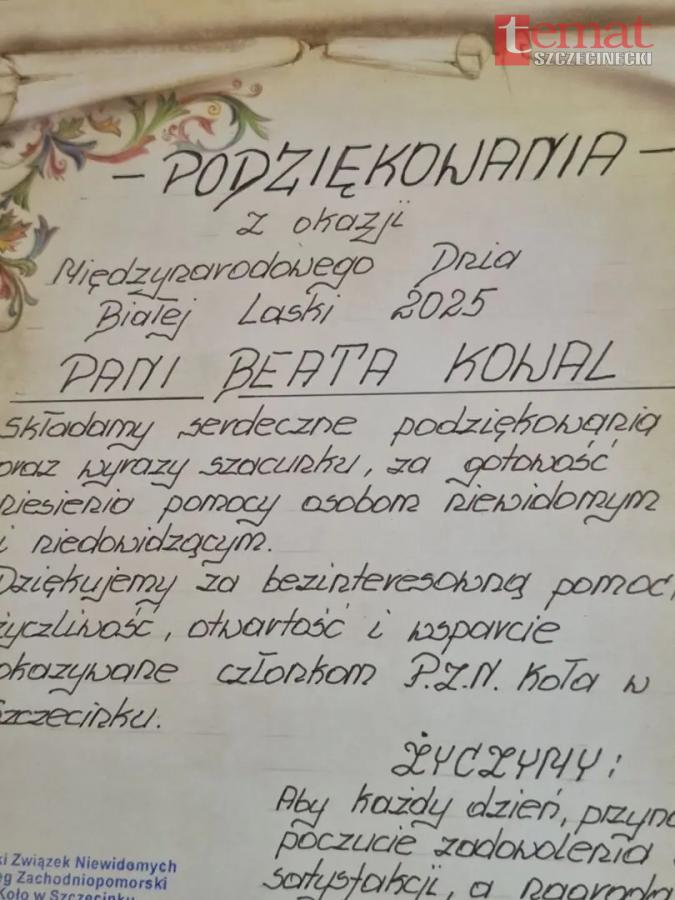 temat
SZCZECINECKI
- PODZIĘKOWANIA -
z okazji
Międzynarodowego Dnia
Białej Laski 2025
PANI BEATA KOWAL
składamy serdeczne podziękowania
oraz wyrazy szacunku, za gotowość
niesienia pomocy osobom niewidomym
i niedowidzącym.
Dziękujemy za bezinteresowną pomoc,
życzliwość, otwartość i wsparcie
okazywane członkom P.Z.N. Koła w
Szczecinku.
ŻYCZYMY:
Aby każdy dzień, przyno
poczucie zadowolenia
satysfakcji, a nagroda
ki Związek Niewidomych
ęg Zachodniopomorski
Koło w Szczecinku